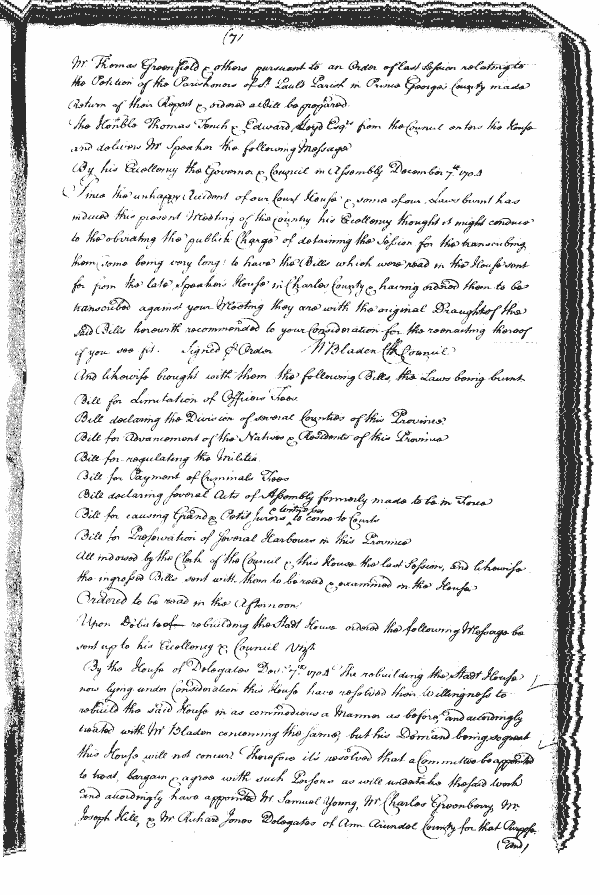 (7)
Mr Thomas Greenfield & others pursuant to an Order of last Session relating to
the Petition of the Parishoners of St Pauls Parish in Prince George's County made
return of their Report & ordered a Bill be prepared
The Honble Thomas Tench & Edward Lloyd Esqrs from the Council enters the House
and delivers Mr Speaker the following Message
By his Excellency the Governor & Council in Assembly December 7th 1704
Since the unhappy Accident of our Court House & some of our Laws burnt has
induced this present Meeting of the Country his Excellency thought it might conduce
to the obviating the publick Charge of detaining the Session for the transcribing
them, some being very long; to have the Bills which were read in the House sent
for from the late Speakers House in Charles County & having ordered them to be
transcribed against your Meeting they are with the original Draughts of the
said Bills herewith recommended to your Consideration for the reenacting thereof
if you see fit. Signed p Order W Bladen Clk Council
And likewise brought with them the following Bills, the Laws being burnt
Bill for Limitation of Officers Fees
Bill declaring the Division of several Counties of this Province
Bill for Advancement of the Natives & Residents of this Province
Bill for regulating the Militia
Bill for Payment of Criminals Fees
Bill declaring several Acts of Assembly formerly made to be in Force
Bill for causing Grand & Petit Jurors & Witnesses to come to Courts
Bill for Preservation of several Harbours in this Province
All indorsed by the Clerk of the Council & this House the last Session, and likewise
the ingrossed Bills sent with them to be read & examined in the House
Ordered to be read in the Afternoon
Upon Debate of rebuilding the Stadt House ordered the following Message be
sent up to his Excellency & Council Vizt
By the House of Delegates Decr 7th 1704 The rebuilding the Stadt House
now lying under Consideration this House have resolved their Willingness to
rebuild the said House in as commodious a Manner as before, and accordingly
treated with Mr Bladen concerning the same, but his Demand being so great
this House will not concur Therefore it is resolved that a Committee be appointed
to treat, bargain & agree with such Persons as will undertake the said work
and accordingly have appointed Mr Samuel Young, Mr Charles Greenberry, Mr
Joseph Hill, & Mr Richard Jones Delegates of Ann Arundel County for that Purpose.
(And)